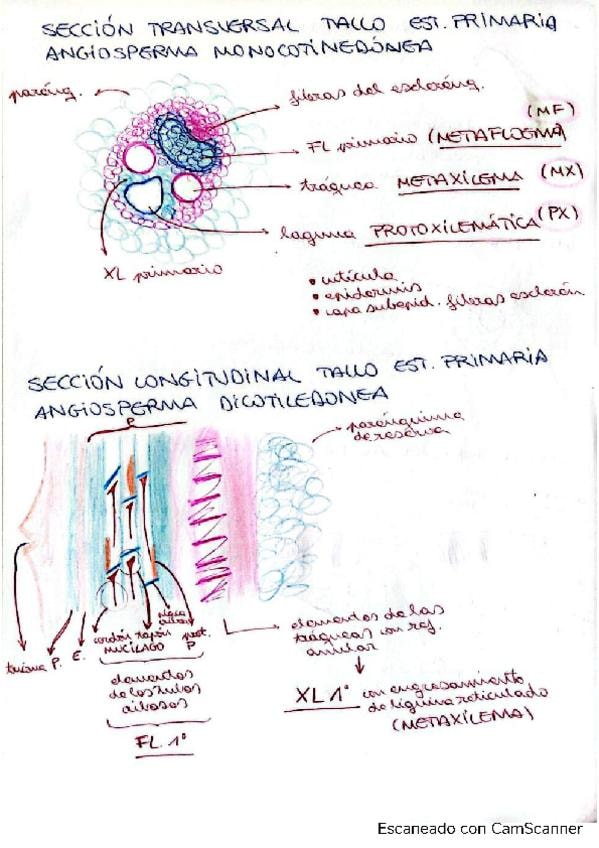 SECCIÓN TRANSVERSAL TALLO EST. PRIMARIA
ANGIOSPERMA MONOCOTINEDÓNEA
parénq.
fibras del esclerénq.
(MF)
FL primario (METAFLOEMA)
tráquea METAXILEMA (MX)
laguna PROTOXILEMÁTICA (PX)
XL primario
• cutícula
• epidermis
• capa subepid. fibras esclerén
SECCIÓN LONGITUDINAL TALLO EST. PRIMARIA
ANGIOSPERMA DICOTILEDONEA
parénquima
de reserva
placa
cribosa
cordón tapón prot.
MUCÍLAGO P
P. E.
elementos
de los tubos
cribosos
FL. 1º
elementos de las
tráqueas con ref.
anular
XL 1º con engrosamiento
de lignina reticulado
(METAXILEMA)
Escaneado con CamScanner